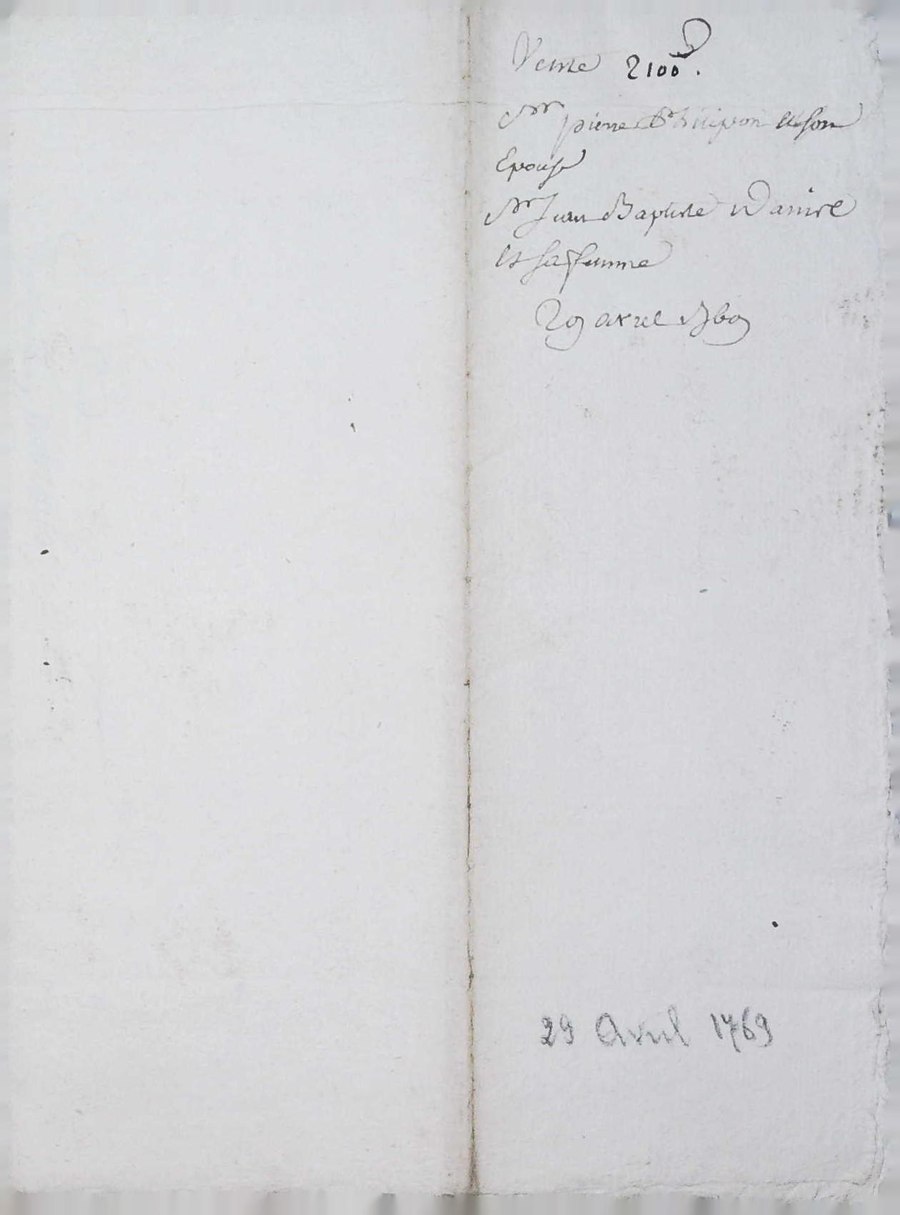 Vente 2100#.
Mr pierre Philipon et son
Epouse
Mr Jean Baptiste
et sa femme
29 avril 1769
29 Avril 1769